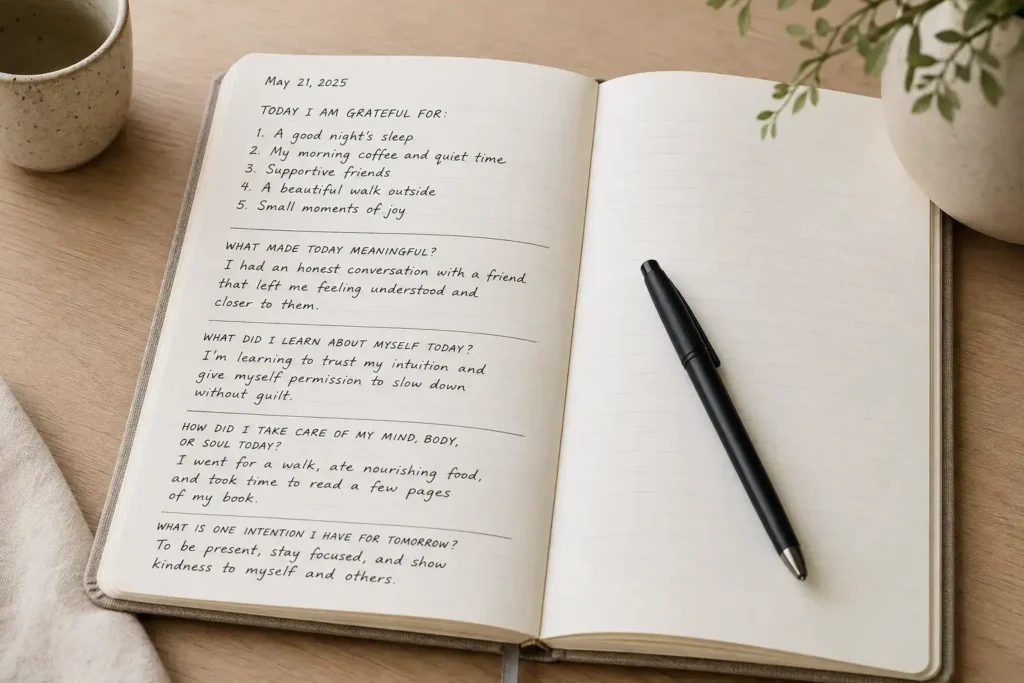 May 21, 2025
TODAY I AM GRATEFUL FOR:
1. A good night's sleep
2. My morning coffee and quiet time
3. Supportive friends
4. A beautiful walk outside
5. Small moments of joy
WHAT MADE TODAY MEANINGFUL?
I had an honest conversation with a friend
that left me feeling understood and
closer to them.
WHAT DID I LEARN ABOUT MYSELF TODAY?
I'm learning to trust my intuition and
give myself permission to slow down
without guilt.
HOW DID I TAKE CARE OF MY MIND, BODY,
OR SOUL TODAY?
I went for a walk, ate nourishing food,
and took time to read a few pages
of my book.
WHAT IS ONE INTENTION I HAVE FOR TOMORROW?
To be present, stay focused, and show
kindness to myself and others.